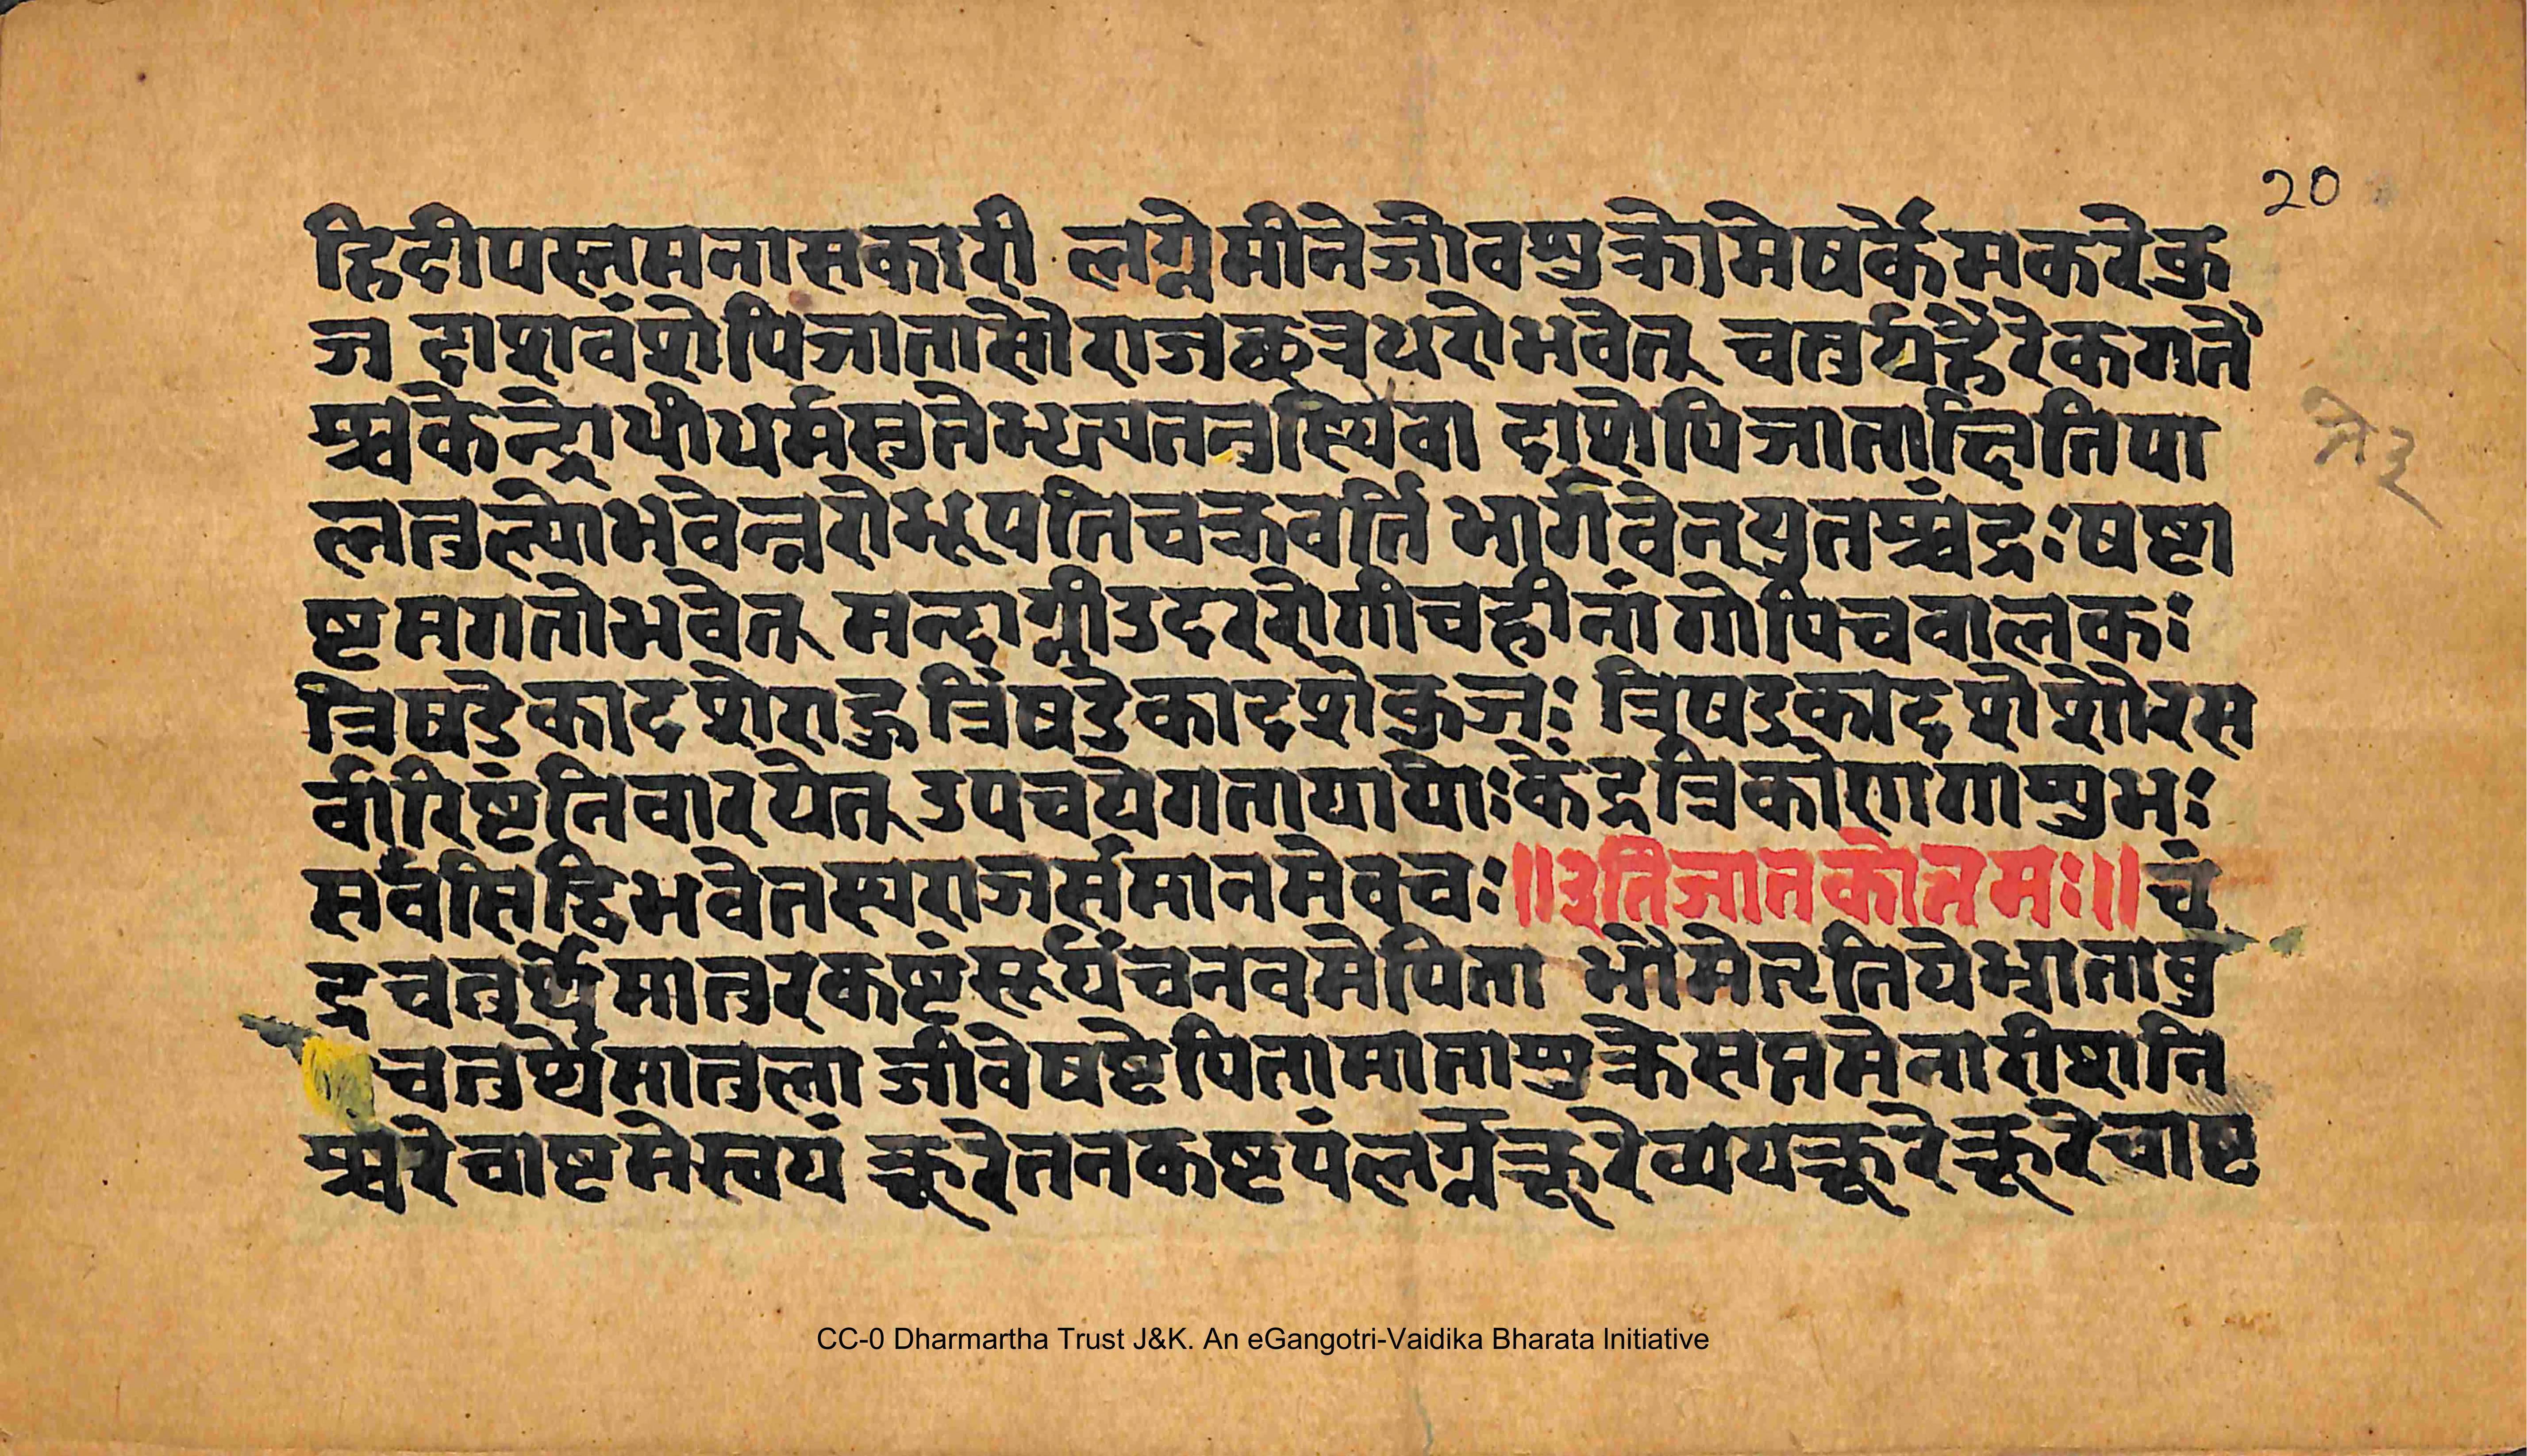 20
द्धिदीपस्तमनासकारी लग्नेमीनेजीवशुक्रोमेषर्केमकरेकु
ज दाशवंशेपिजातासौराजछत्रधरोभवेत् चतुर्ग्रहैरेकगतै
श्चकेन्द्रा धर्मसुतेम्थ वा दाशेपिजाता पा
लतुल्योभवेन्नरोभूपतिचक्रवर्ति भार्गवेनयुतश्चंद्रःषष्टा
ष्टमगतोभवेत् मन्दाग्नीउदररोगीचहीनांगोपिचवालकः
त्रिषडेकादशेराहु त्रिंषडेकादशेकुजः त्रिषडकादशेशौरस
र्वारिष्टंनिवारयेत् उपचयेगतापापाःकेंद्रत्रिकोणगाशुभः
सर्वसिद्धिभवेतस्यराजर्समानमेवचः॥इतिजातकोत्तमः॥ चं
द्रचतुर्थेमातुरकष्टंसूर्यंचनवमेपिता भौमेत्रतियेभ्राताबु
चतुर्थेमातुला जीवेषष्टेपितामाताशुक्रेसप्तमेनारीशनि
श्चरेवाष्टमेस्वयं क्रूरेतनकष्टयंलर्ग्नेक्रूरेव्ययक्रूरेक्रूरेचाष्ट
CC-0 Dharmartha Trust J&K. An eGangotri-Vaidika Bharata Initiative